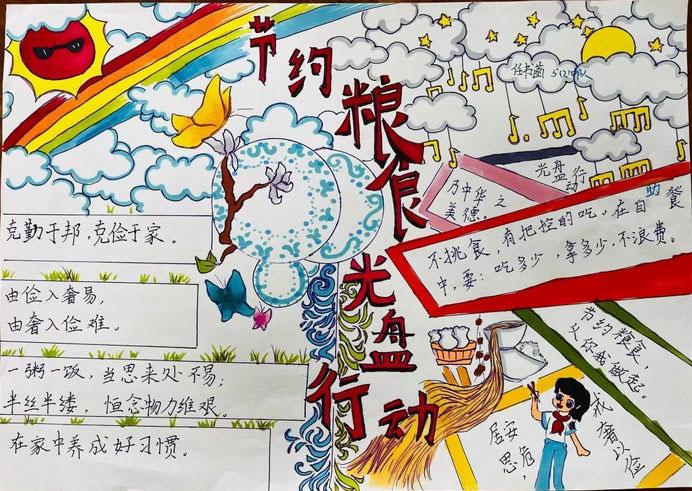 节约粮食
光盘行动
克勤于邦，克俭于家。
由俭入奢易，
由奢入俭难。
一粥一饭，当思来处不易；
半丝半缕，恒念物力维艰。
在家中养成好习惯。
光盘行动
乃中华之
美德。
不挑食，有把控的吃，在自助餐
中，要：吃多少，拿多少，不浪费。
节约粮食，
从你我做起。
居安
思危，
戒奢以俭